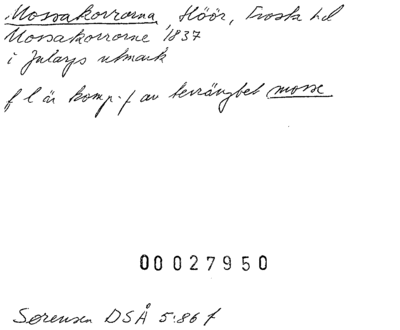 Mossakorrorna, Höör, Frosta hd
Mossakorrorne 1837
i Jularps utmark
f l är komp.f av terrängbet mosse
00027950
Sørensen DSÅ 5:86 f